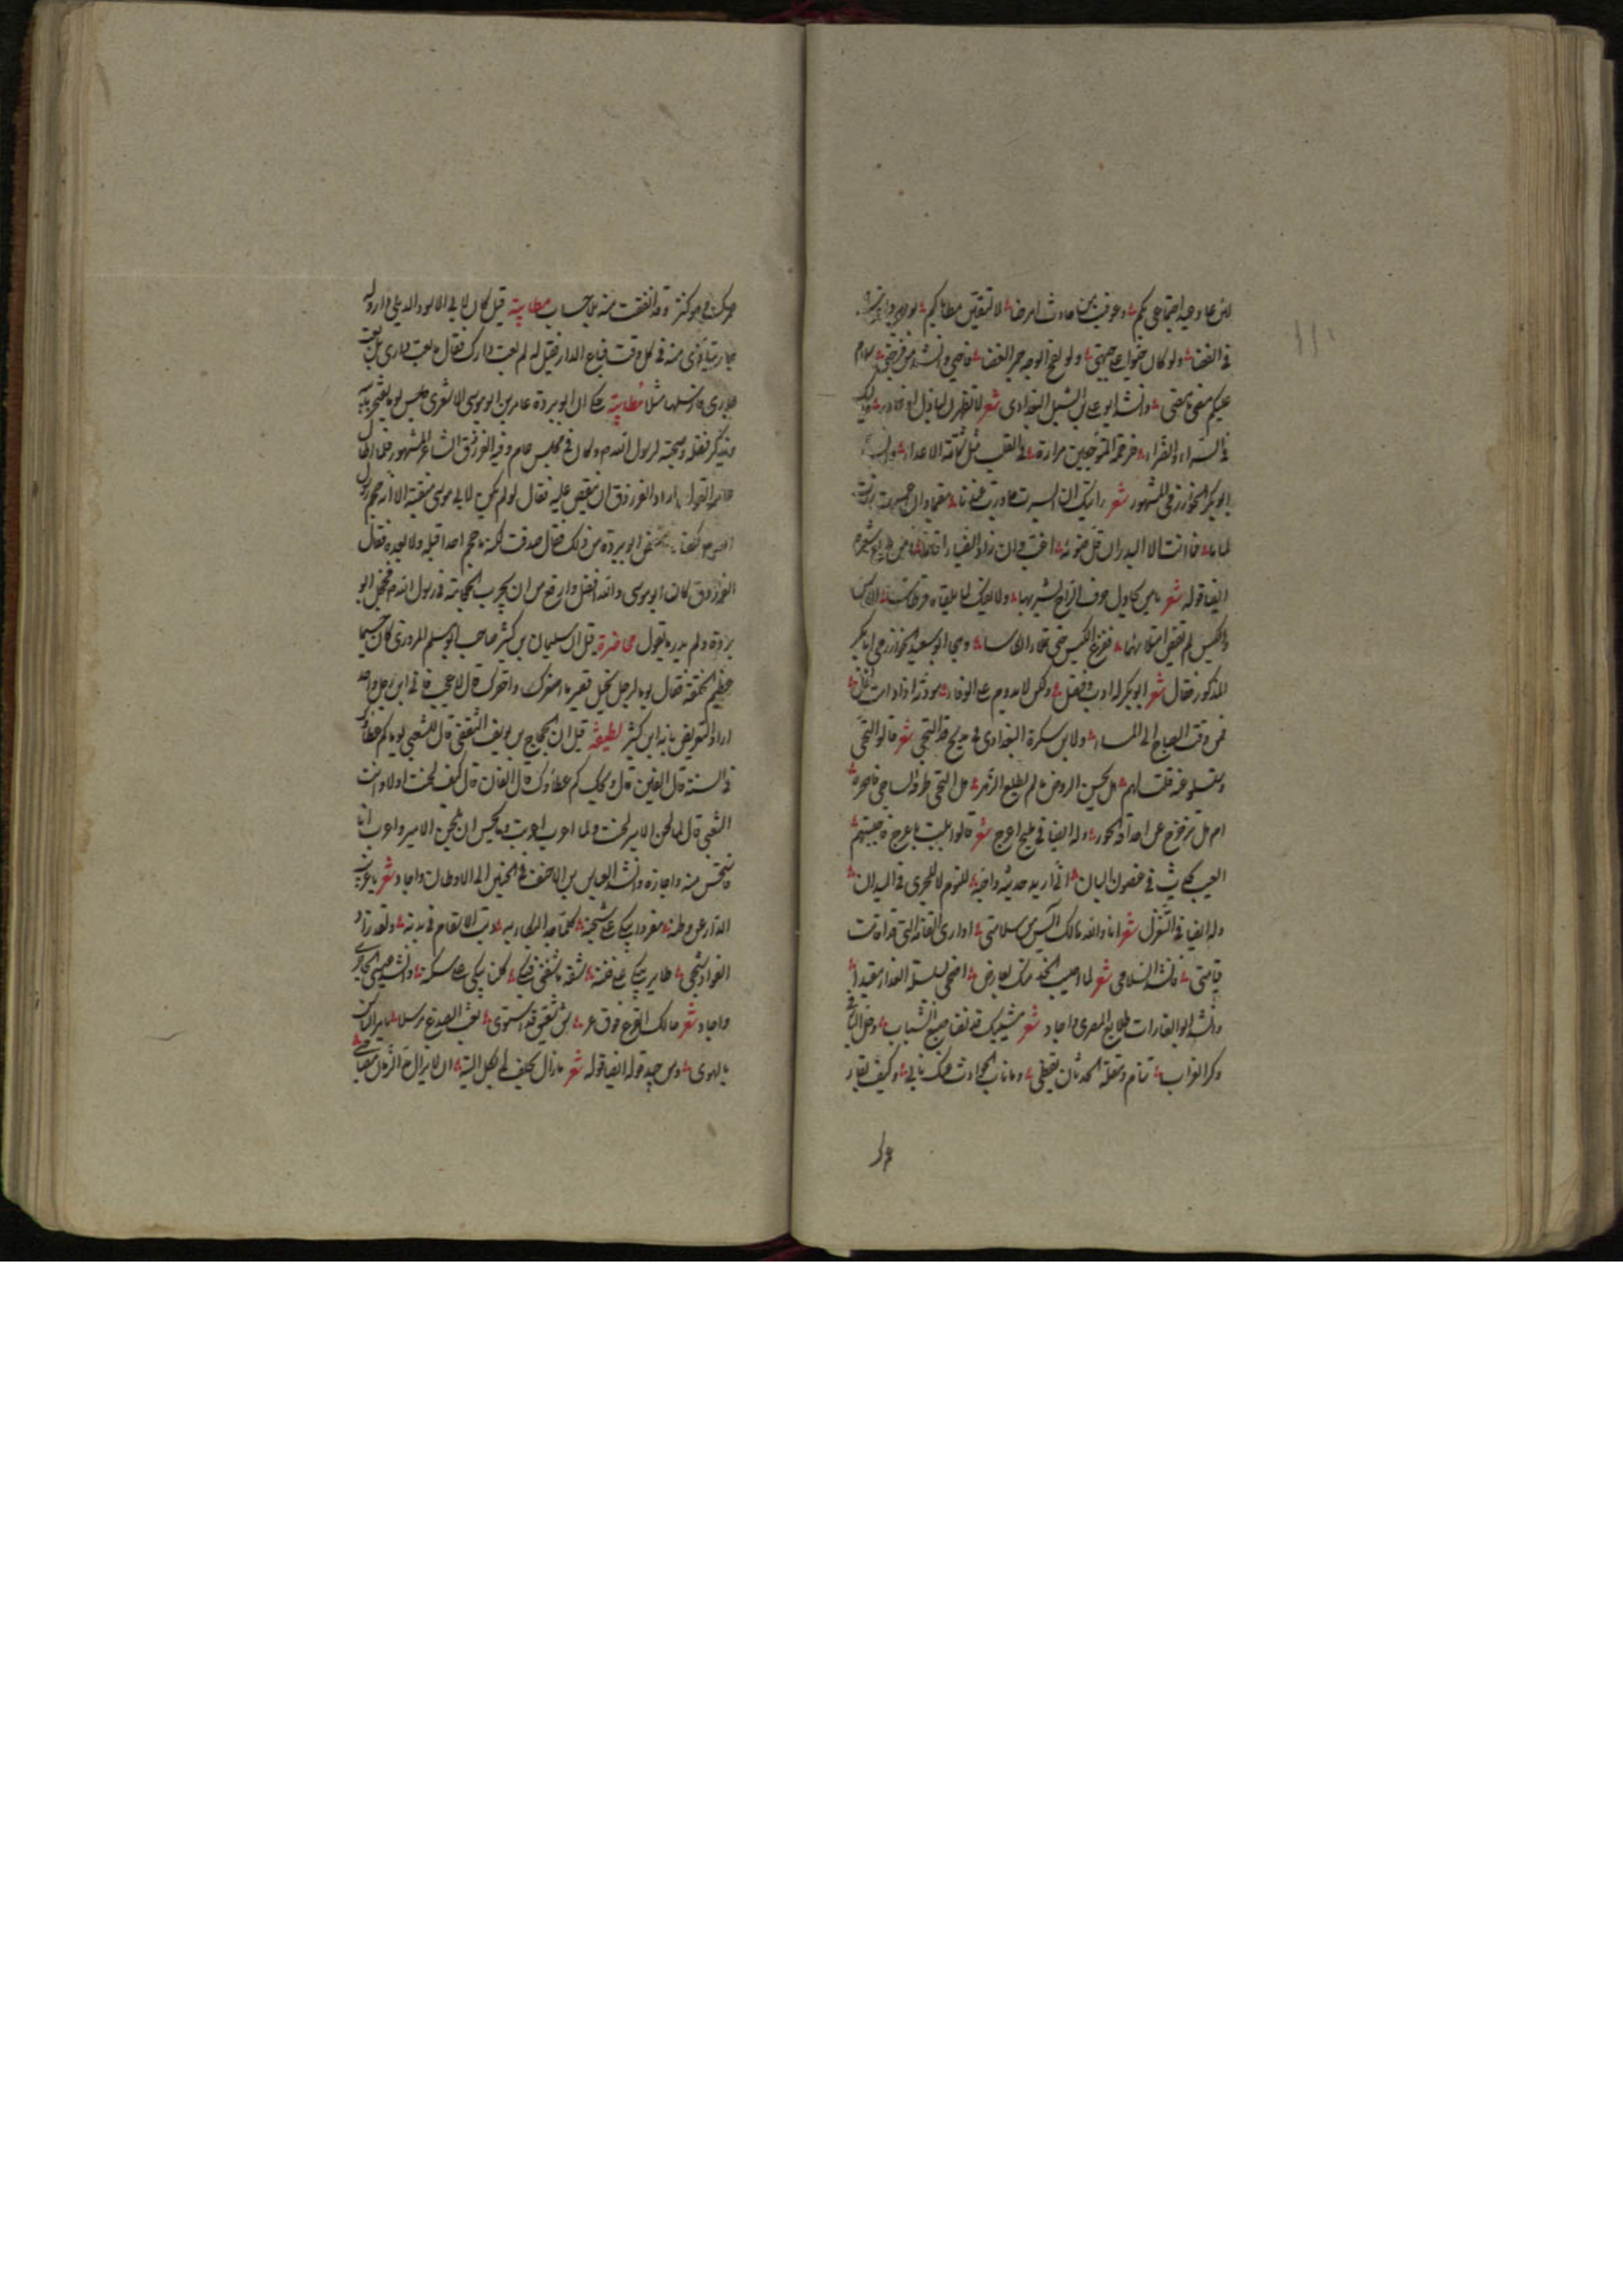 لئن عاد وجه اجتماعي بكم وعوفيت من حادث امرضا لا تبقين مطايكم
في الفضا ولو كان خوضا على جبهتي ولو لفح الوجه جمر الغضا
عليكم مضى ما مضى وانشد ابو علي بن الشبل البغدادي شعر لا تظهرن لعاذل او عاذر حاليك
في السراء والضراء فلرحمة المتوجعين مرارة في القلب مثل شماتة الاعداء
ابو بكر الخوارزمي المشهور شعر رايتك ان ايسرت خيمت عندنا مقيما وان اعسرت زرت
لماما فما انت الا البدر ان قل ضوءه اغب وان زاد الضياء اقاما
ايضا قوله شعر
والكيس لم تقض امتلائهما ففرغ الكيس حتى تملاء الكاسا وهجا ابو سعيد الخوارزمي ابا بكر
المذكور فقال شعر ابو بكر له ادب وفضل ولكن لا يدوم على الوفاء مودته اذا دامت لخل
فمن وقت الصباح الى المساء ولابن سكرة البغدادي في مليح قد التحى شعر قالوا التحى
وستسلو عنه قلت لهم هل يحسن الروض ما لم يطلع الزهر هل التحى طرفه الساجي فاهجره
ام هل تزحزح عن اجفانه الحور وله ايضا في مليح اعرج شعر قالوا بليت باعرج فاجبتهم
العيب يحدث في غصون البان اني اريد حديثه واحبه للنوم لا للجري في الميدان
وله ايضا في التغزل شعر انا والله هالك آيس من سلامتي او ارى القامة التي قد اقامت
قيامتي وانشد السلامي شعر لما اصيب الخد منك بعارض اضحى بسلسلة العذار مقيدا
وانشد ابو الغارات طلائع المصري واجاد شعر مشيبك قد نضا صبغ الشباب وحل الباز في
وكر الغراب تنام ومقلة الحدثان يقظى وما ناب الحوادث عنك ناب وكيف بقاء
عمرك
عمرك وهو كنز وقد انفقت منه بلا حساب مطايبة قيل كان لابي الاسود الدئلي دار وله
جار يتأذى منه في كل وقت فباع الدار فقيل له لم بعت دارك فقال ما بعت داري بل بعت
جاري فارسلها مثلا مطايبة يحكى ان ابو بردة عامر بن ابو موسى الاشعري جلس يوما يفتخر بابيه
ويذكر فضله وصحبته لرسول الله ص وكان في مجلس عام وفيه الفرزدق الشاعر المشهور فلما اطال
القول اراد الفرزدق ان ينقص عليه فقال لو لم يكن لابي موسى منقبة الا انه حجم رسول
الله ص لكفاه ابو بردة من ذلك فقال صدقت لكنه ما حجم احدا قبله ولا بعده فقال
الفرزدق كان ابو موسى والله افضل واورع من ان يجرب الحجامة في رسول الله ص فخجل ابو
بردة ولم يدر ما يقول محاضرة قيل ان سليمان بن كثير صاحب ابو مسلم المروزي كان جسيما
عظيم الخلقة فقال يوما لرجل نحيل قصير ما اصغرك واحقرك قال لا عجب فاني ابن رجل واحد
اراد التعريض بانه ابن كثير لطيفة قيل ان الحجاج بن يوسف الثقفي قال للشعبي يوما كم عطاءك
في السنة قال الفين قال ويحك كم عطاؤك قال الفان قال كيف لحنت اولا وانت
الشعبي قال لما لحن الامير لحنت ولما اعرب اعربت وما يحسن ان يلحن الامير واعرب انا
فاستحسن منه واجازه وانشد العباس بن الاحنف في الحنين الى الاوطان واجاد شعر يا غريب
الدار عن وطنه مفردا يبكي على شجنه كلما جد البكاء به دبت الاسقام في بدنه ولقد زاد
الفؤاد شجى طاير يبكي على فننه شفه ما شفني فبكى كلنا يبكي على سكنه وانشد
واجاد شعر
بالهوى ومن جيد قوله ايضا قوله شعر ما زال يحلف لي بكل الية ان لا يزال مدى الزمان مصاحبي